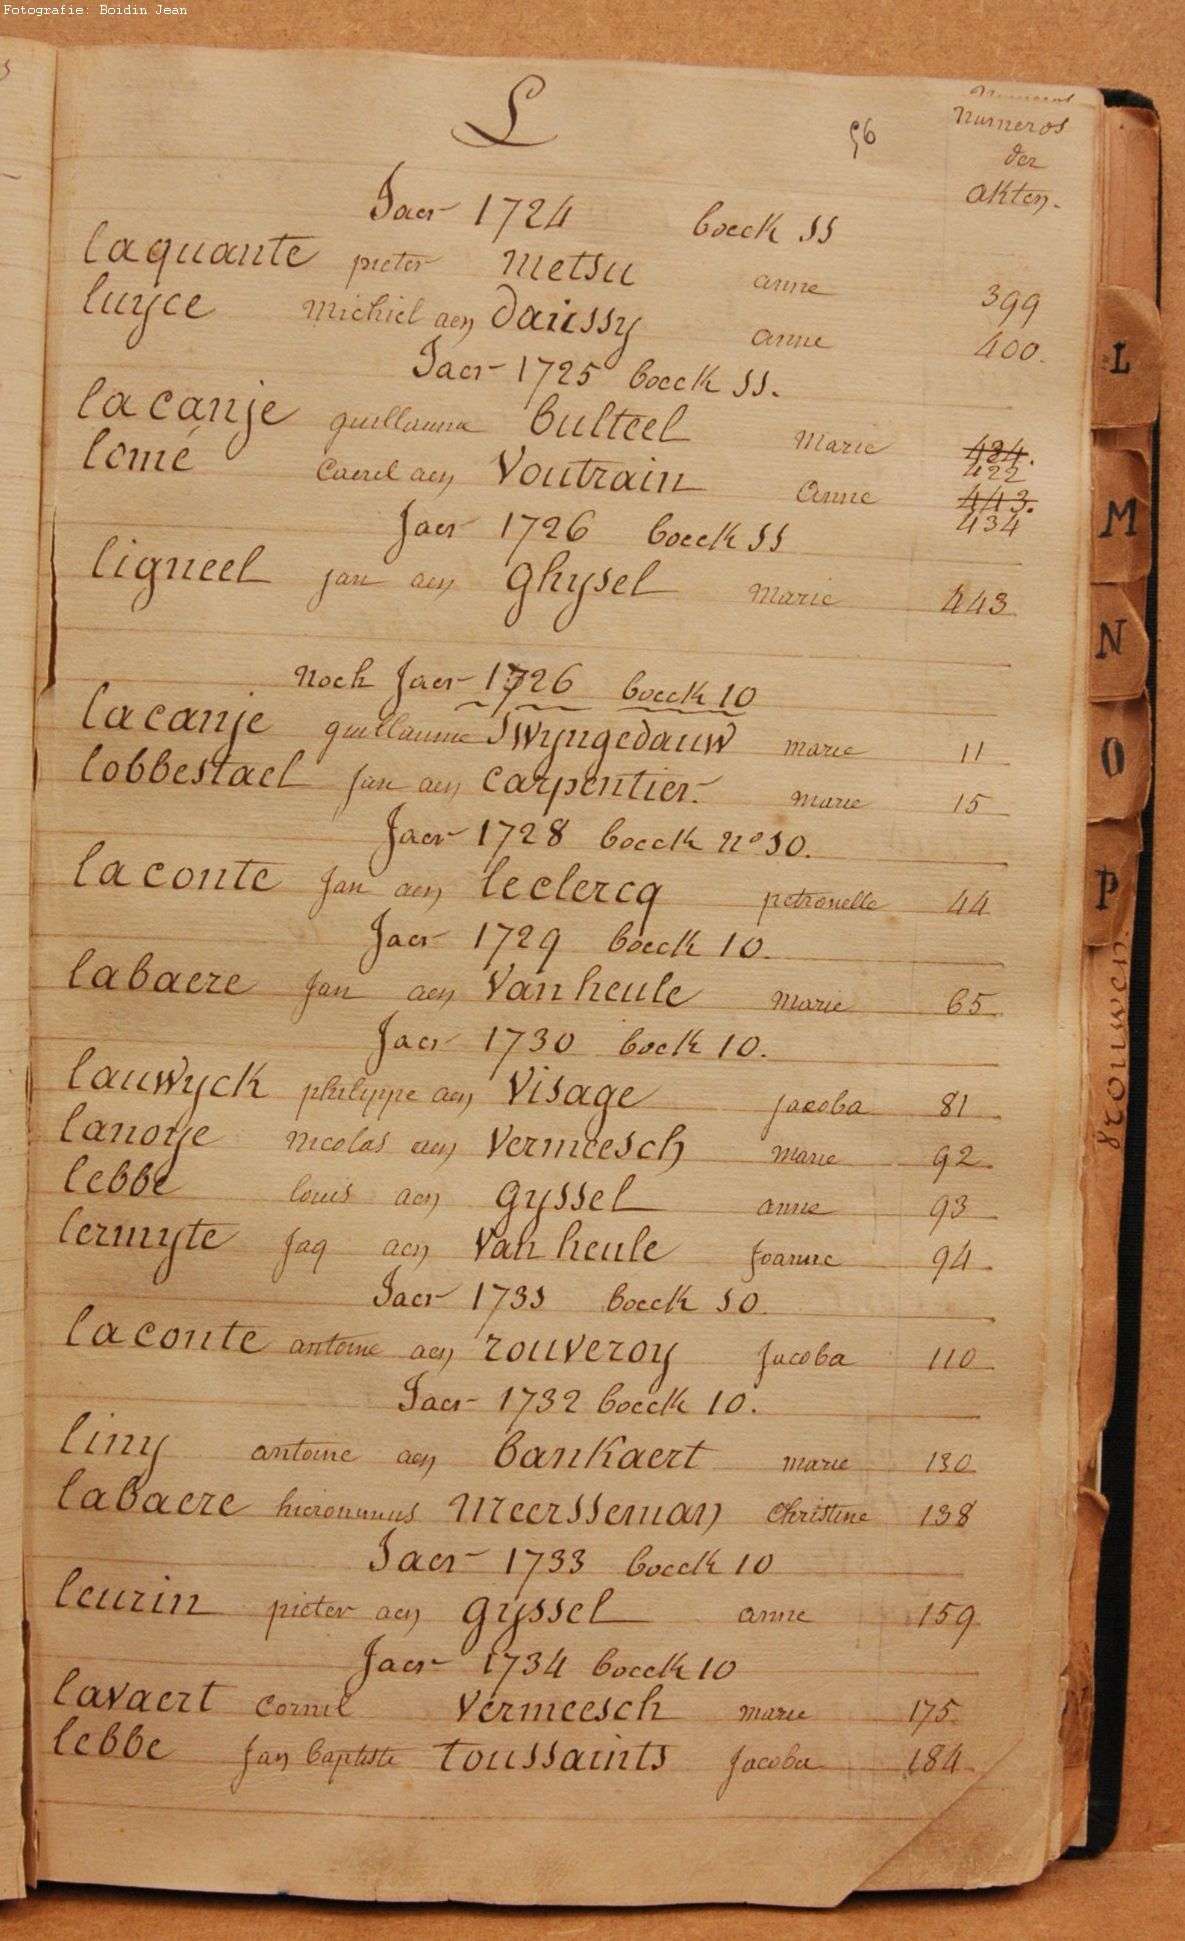 Fotografie: Boidin Jean
L
56
Numeros
der
akten.
Jaer 1724 boeck 11
laquante pieter Metsu anne 399
luyce Michiel aen Daussy anne 400.
Jaer 1725 boeck 11.
lacanje guillaume bulteel Marie 424. 422
lomé Caerel aen Voutrain Anne 443. 434
Jaer 1726 boeck 11
ligneel jan aen ghysel Marie 443
Noch Jaer 1726 boeck 10
lacanje guillaume Swyngedauw marie 11
lobbestael Jan aen Carpentier. marie 15
Jaer 1728 boeck no 10.
laconte Jan aen leclercq petronelle 44
Jaer 1729 boeck 10.
labaere Jan aen Vanheule Marie 65
Jaer 1730 boek 10.
lauwyck philippe aen Visage jacoba 81
lanoye nicolas aen Vermeesch marie 92
lebbe louis aen gyssel anne 93
lermyte Jaq aen Van heule Joanne 94
Jaer 1731 boeck 10
laconte antoine aen rouveroy Jacoba 110
Jaer 1732 boeck 10.
liny antoine aen bankaert marie 130
labaere hieronimus Meersseman Christine 138
Jaer 1733 boeck 10
leurin pieter aen gyssel anne 159
Jaer 1734 boeck 10
lavaert Cornil Vermeesch marie 175
lebbe Jan baptiste toussaints Jacoba 184
L
M
N
O
P
vrouwen